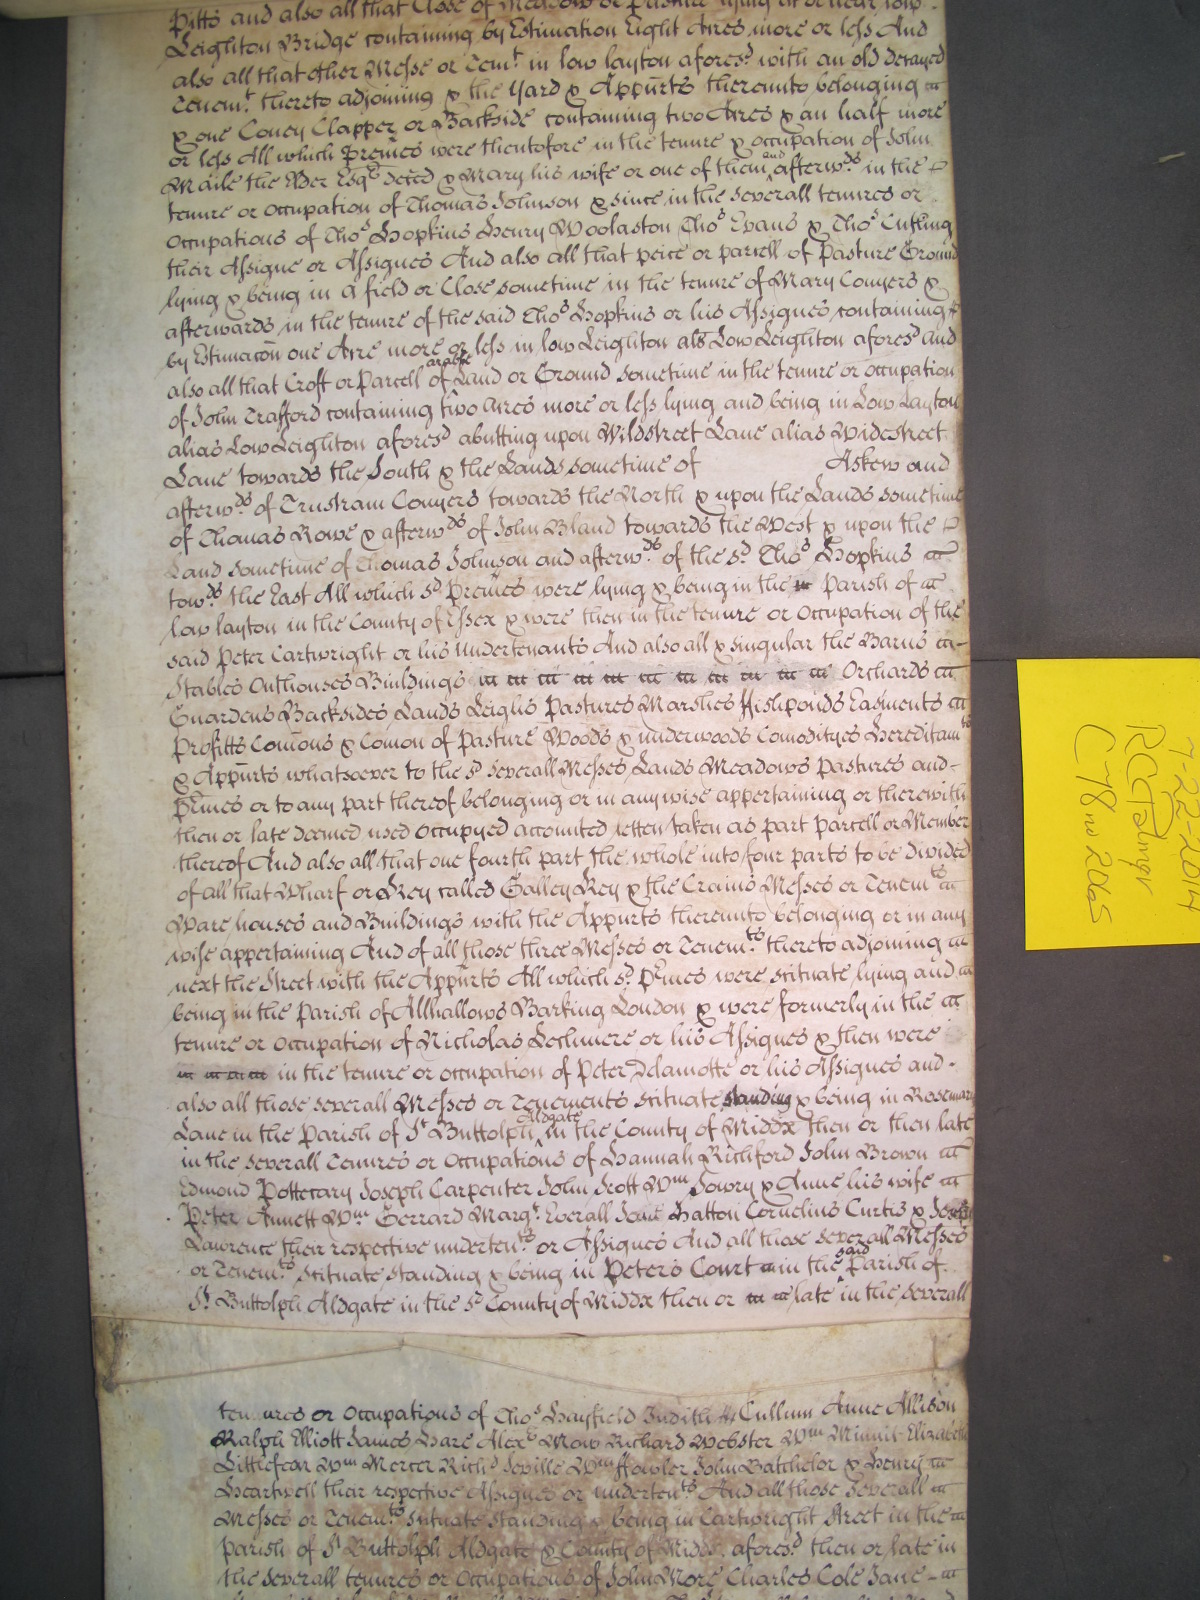 Pitts and also all that Close of Meadow or Pasture lying at or near low
Leighton Bridge containing by Estimation Eight Acres more or less And
also all that other Messe or Temt in low layton aforesd with an old decayed
Tenemt thereto adjoining & the Yard & Appurts thereunto belonging
& one Coney Clapper or Backside containing two Acres & an half more
or less All which Premes were theretofore in the tenure & occupation of John
the Elder Esqr decēd & Mary his wife or one of them and afterwds in the
tenure or Occupation of Thomas Johnson & since in the severall tenures or
Occupations of Thos Hopkins Henry Woolaston Thos Evans & Thos Cutling
their Assigne or Assignes And also all that peice or parcell of Pasture Ground
lying & being in a field or Close sometime in the tenure of Mary Conyers &
afterwards in the tenure of the said Thos Hopkins or his Assignes containing
by Estimacōn one Acre more or less in low Leighton als Low Leighton aforesd and
also all that Croft or Parcell of arable Land or Ground sometime in the tenure or occupation
of John Trafford containing two Acres more or less lying and being in Low Layton
alias Low Leighton aforesd abutting upon Wildstreet Lane alias Widestreet
Lane towards the South & the Lands sometime of Askew and
afterwds of Trustram Conyers towards the North & upon the Lands sometime
of Thomas Rowe & afterwds of John Bland towards the West & upon the
Land sometime of Thomas Johnson and afterwds of the sd Thos Hopkins
towds the East All which sd Premes were lying & being in the Parish of
low layton in the County of Essex & were then in the tenure or Occupation of the
said Peter Cartwright or his Undertenants And also all & singular the Barns
Stables Outhouses Buildings Orchards
Guardens Backsides Lands Leighs Pastures Marshes Fishponds Easments
Profitts Comons & Comon of Pasture Woods & underwoods Comodityes Hereditamts
& Appurts whatsoever to the sd severall Messes Lands Meadows Pastures and
prmes or to any part thereof belonging or in any wise appertaining or therewith
then or late deemed used Occupyed accounted letten taken as part Parcell or Member
thereof And also all that one fourth part the whole into four parts to be divided
of all that Wharf or Key called Galley Key & the Crains Messes or Tenemts
Ware houses and Buildings with the Appurts thereunto belonging or in any
wise appertaining And of all those three Messes or Tenemts thereto adjoining
next the Street with the Appurts All which sd prmes were scituate lying and
being in the Parish of Allhallows Barking London & were formerly in the
tenure or Occupation of Nicholas Lechmere or his Assignes & then were
in the tenure or occupation of Peter Delamotte or his Assignes and
also all those severall Messes or Tenements scituate standing & being in Rosemary
Lane in the Parish of St Buttolph Aldgate in the County of Middx then or then late
in the severall Tenures or Occupations of Hannah Richford John Brown
Edmond Pottecary Joseph Carpenter John Scott Wm Sowry & Anne his wife
Peter Annett Wm Gerrard Margt Everall Jane Hatton Cornelius Curtis & Joseph
Lawrence their respective undertents or Assignes And all those severall Messes
or Tenemts scituate standing & being in Peters Court in the said Parish of
St Buttolph Aldgate in the sd County of Middx then or late in the severall
tenures or Occupations of Thos Hayfield Judith McCullum Anne Allison
Ralph Elliott James Hare Alexr Mow Richard Webster Wm Minnis Elizabeth
Littlefear Wm Mercer Richd Seville Wm Fowler John Batchelor & Henry
Heartwell their respective Assignes or undertents And all those severall
Messes or Tenemts scituate standing & being in Cartwright Street in the
Parish of St Buttolph Aldgate & County of Middx aforesd then or late in
the severall tenures or Occupations of John More Charles Cole Jane
7-22-2014
RCTalmgr
C 78 no 2065